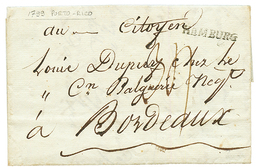 1798 PORTO-RICO
au Citoyen
HAMBURG
Louis Dupuy chez le
Cn Balguerie Negt.
à
Bordeaux